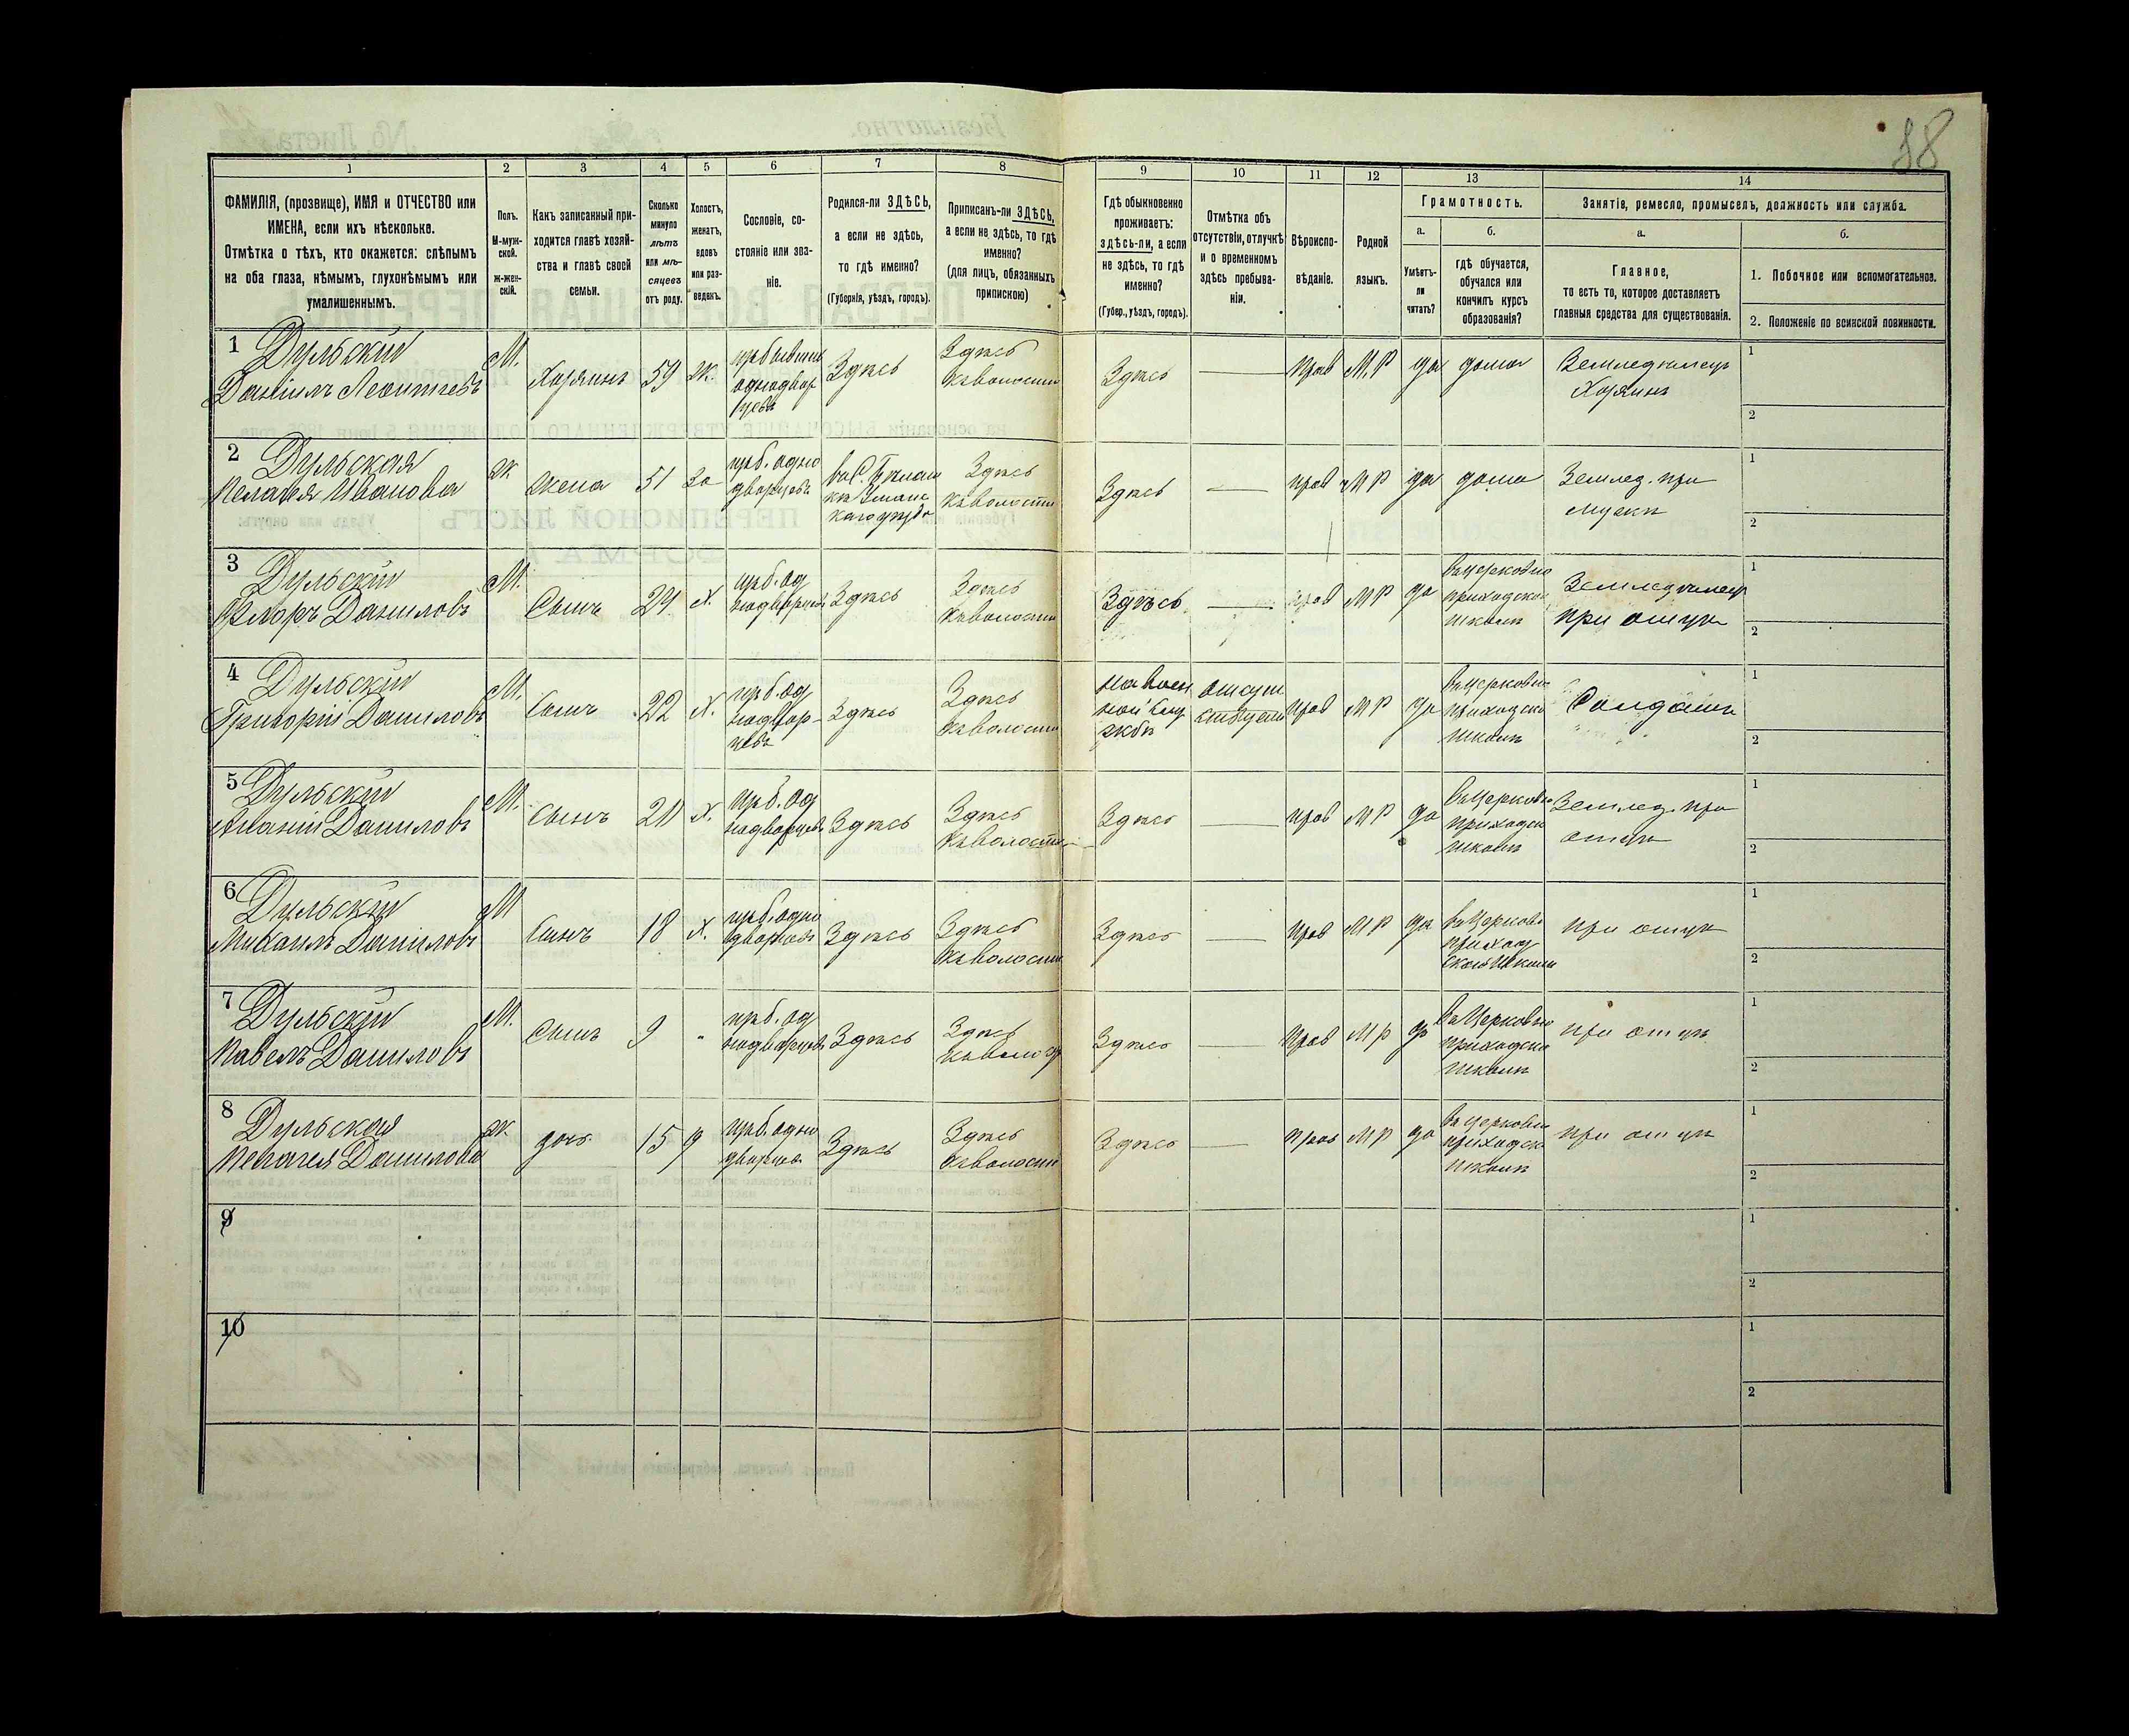 18
1 2 3 4 5 6 7 8 9 10 11 12 13 14
ФАМИЛІЯ, (прозвище), ИМЯ и ОТЧЕСТВО или
ИМЕНА, если ихъ нѣсколько.
Отмѣтка о тѣхъ, кто окажется: слѣпымъ
на оба глаза, нѣмымъ, глухонѣмымъ или
умалишеннымъ.
Полъ.
М-муж-
ской.
ж-жен-
скій.
Какъ записанный при-
ходится главѣ хозяй-
ства и главѣ своей
семьи.
Сколько
минуло
лѣтъ
или мѣ-
сяцевъ
отъ роду.
Холостъ,
женатъ,
вдовъ
или раз-
веденъ.
Сословіе, со-
стояніе или зва-
ніе.
Родился-ли ЗДѢСЬ,
а если не здѣсь,
то гдѣ именно?
(Губернія, уѣздъ, городъ).
Приписанъ-ли ЗДѢСЬ,
а если не здѣсь, то гдѣ
именно?
(для лицъ, обязанныхъ
припискою)
Гдѣ обыкновенно
проживаетъ:
здѣсь-ли, а если
не здѣсь, то гдѣ
именно?
(Губер., уѣздъ, городъ).
Отмѣтка объ
отсутствіи, отлучкѣ
и о временномъ
здѣсь пребыва-
ніи.
Вѣроиспо-
вѣданіе.
Родной
языкъ.
Грамотность.
а.
Умѣетъ-
ли
читать?
б.
гдѣ обучается,
обучался или
кончилъ курсъ
образованія?
Занятіе, ремесло, промыселъ, должность или служба.
а.
Главное,
то есть то, которое доставляетъ
главныя средства для существованія.
б.
1. Побочное или вспомогательное.
2. Положеніе по воинской повинности.
1 Дульский
Даніилъ Леонтіевъ
М. Хозяинъ 59 ж.
изъ бывших
однодвор
цевъ
Здѣсь
Здѣсь
къ волости
Здѣсь — прав М.Р да дома
Земледѣлецъ
Хозяинъ
1
2
2 Дульская
Пелагея Иванова
ж жена 51 за
изъ б. одно
дворцевъ
Здѣсь
къ волости
Здѣсь — прав М Р да дома
Землед. при
мужѣ
1
2
3 Дульский
Флоръ Даниловъ
М. Сынъ 29 Х.
изъ б. од
нодворцевъ
Здѣсь
Здѣсь
къ волости
Здѣсь — прав М Р да
въ церковно
приходской
школѣ
Земледѣлецъ
при отцѣ
1
2
4 Дульский
Григорій Даниловъ
М. Сынъ 22 Х.
изъ б. од
нодвор-
цевъ
Здѣсь
Здѣсь
къ волости
на воен
ной слу
жбѣ
прав М Р да
въ церковно
приходско
школѣ
Солдатъ
1
2
5 Дульский
Ананій Даниловъ
М. Сынъ 20 Х.
изъ б. од
нодворцевъ
Здѣсь
Здѣсь
къ волости
Здѣсь — прав М Р да
въ церковно
приходск
школѣ
Землед. при
отцѣ
1
2
6 Дульский
Михаилъ Даниловъ
М Сынъ 18 Х.
изъ б. одно
дворцевъ
Здѣсь
Здѣсь
къ волости
Здѣсь — прав М Р да
въ церковно
приход
ской школѣ
при отцѣ
1
2
7 Дульский
Павелъ Даниловъ
М. Сынъ 9 "
изъ б. од
нодворцевъ
Здѣсь
Здѣсь
къ волос
Здѣсь — прав М Р да
въ церковно
приходско
школѣ
при отцѣ
1
2
8 Дульская
Пелагея Данилова
ж. дочь 15 д
изъ б. одно
дворцевъ
Здѣсь
Здѣсь
къ волости
Здѣсь — прав М Р да
въ церковно
приходско
школѣ
при отцѣ
1
2
9
1
2
10
1
2